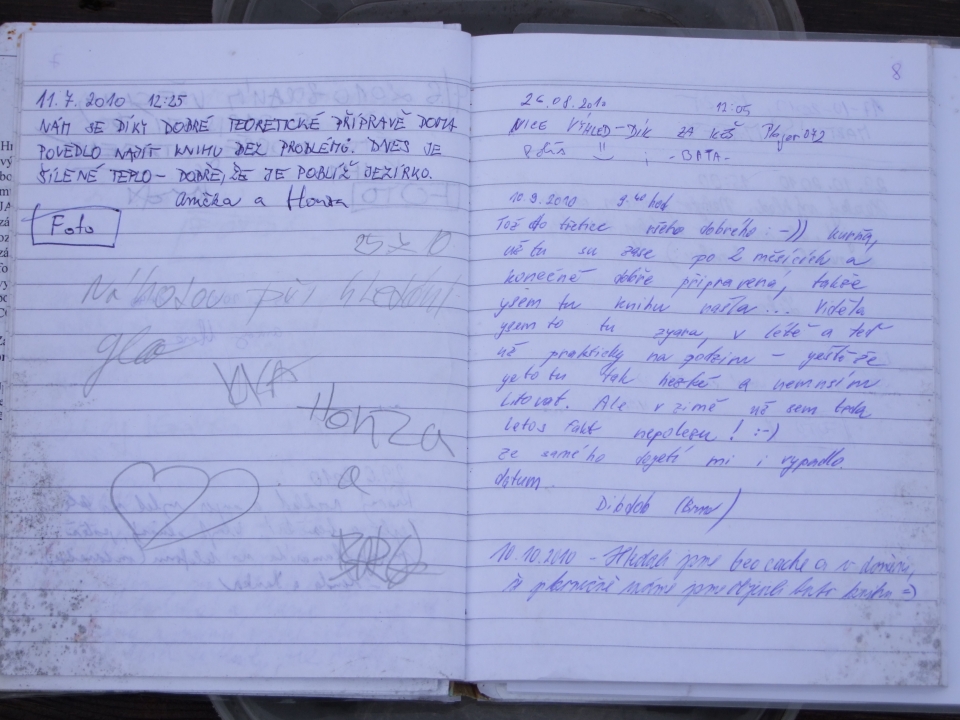 11.7.2010 12:25
NÁM SE DÍKY DOBRÉ TEORETICKÉ PŘÍPRAVĚ DOMA
POVEDLO NAJÍT KNIHU BEZ PROBLÉMŮ. DNES JE
ŠÍLENÉ TEPLO - DOBŘE, ŽE JE POBLÍŽ JEZÍRKO.
Anička a Honza
Foto
Náhodou při hledání
Honza
a
8
26.08.2010 12:05
NICE VÝHLED - DÍK ZA KEŠ Player042
- BAŤA -
10.9.2010 9.40 hod
Tož do třetice všeho dobrého :-)) kurňa,
už tu su zase po 2 měsících a
konečně dobře připravená, takže
ysem tu knihu našla... Viděla
ysem to tu zyara, v létě a teď
už prakticky na podzim - yeště že
ye to tu tak hezké a nemusím
litovat. Ale v zimě už sem teda
letos fakt nepolezu! :-)
Ze samého dojetí mi i vypadlo
datum.
Dibdob (Brno)
10.10.2010 - Hledali jsme geocache a v domění,
že jsme knihu =)